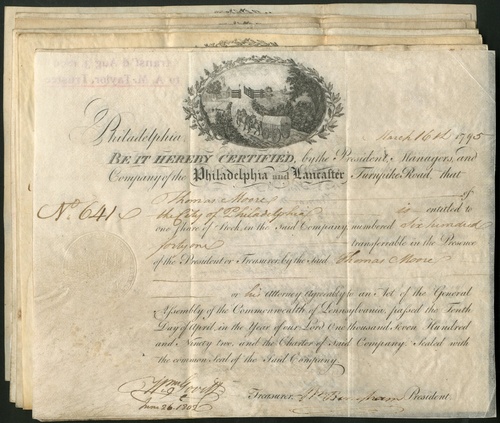 transf'd Aug
to A. McTaylor, Trustee
Philadelphia March 16th 1795
BE IT HEREBY CERTIFIED, by the President, Managers, and
Company of the Philadelphia and Lancaster Turnpike Road, that
Thomas Moore of
No. 641 the City of Philadelphia is entitled to
one Share of Stock, in the Said Company, numbered Six hundred
forty one transferrable in the Presence
of the President or Treasurer, by the Said Thomas Moore
or his Attorney Agreeably to an Act of the General
Assembly of the Commonwealth of Pennsylvania, passed the Ninth
Day of April, in the Year of our Lord One thousand Seven Hundred
and Ninety two, and the Charter of Said Company, Sealed with
the common Seal of the Said Company.
Wm Govett
Treasurer. Wm Bingham President.